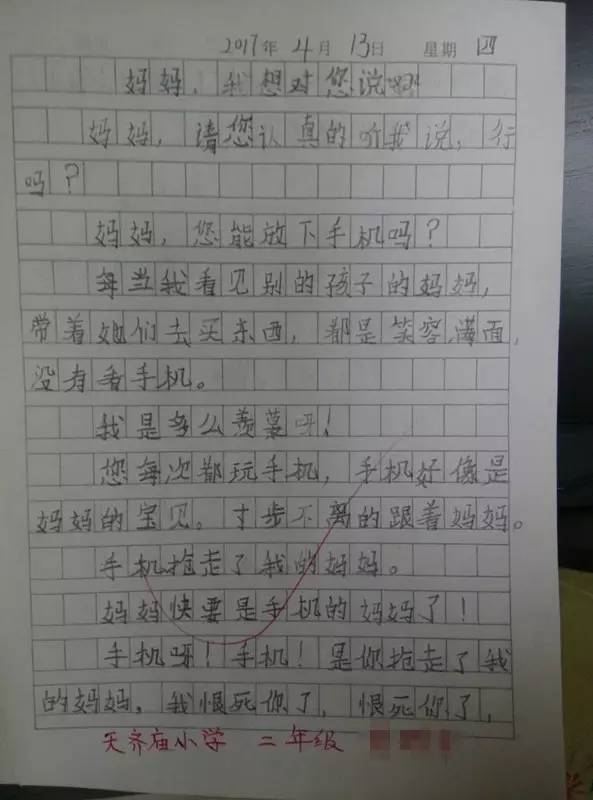 2017年 4月 13日 星期 四
妈妈，我想对您说
妈妈，请您认真的听我说，行
吗？
妈妈，您能放下手机吗？
每当我看见别的孩子的妈妈，
带着她们去买东西，都是笑容满面，
没有看手机。
我是多么羡慕呀！
您每次都玩手机，手机好像是
妈妈的宝见。寸步不离的跟着妈妈。
手机抢走了我的妈妈。
妈妈快要是手机的妈妈了！
手机呀！手机！是你抢走了我
的妈妈，我恨死你了，恨死你了，
天齐庙小学 二年级